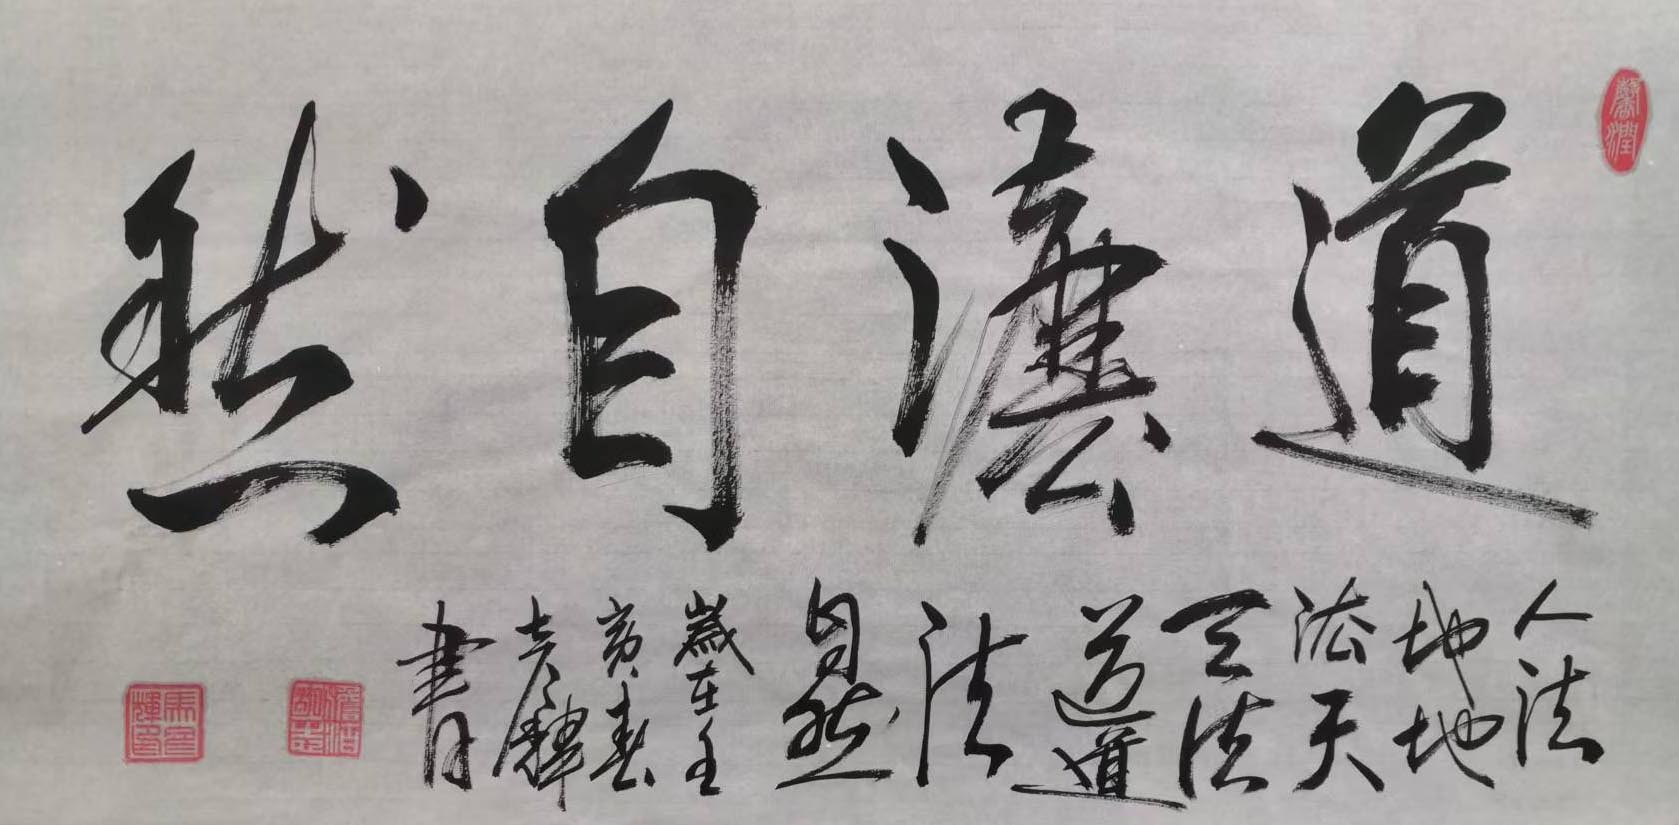 道灋自然
人法
地地
法天
天法
道道
法
自然
歲在壬
寅春
彦輝
書
馨潤